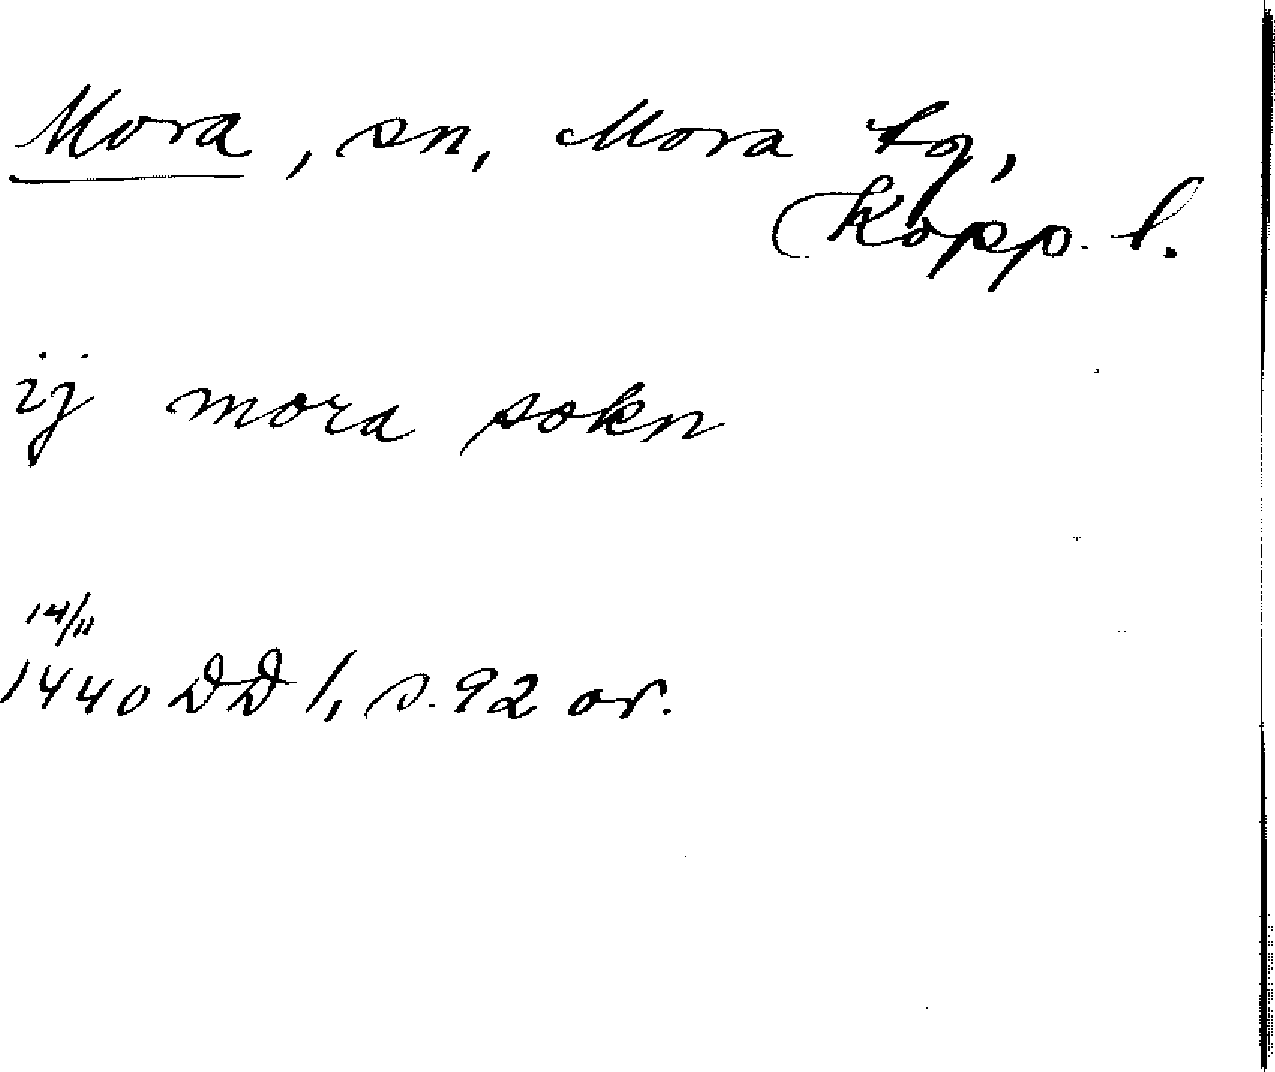 Mora, sn, Mora tg,
Kopp. l.
ij mora sokn
14/11
1440 DD 1, s. 92 or.